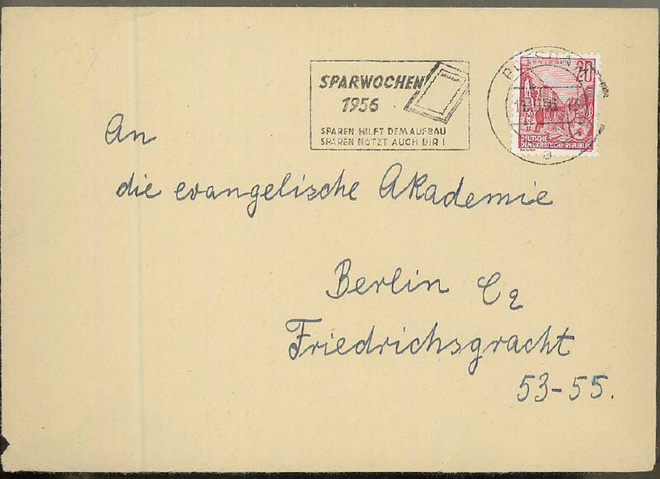 SPARWOCHEN
1956
SPAREN HILFT DEM AUFBAU
SPAREN NÜTZT AUCH DIR!
20
DEUTSCHE
DEMOKRATISCHE REPUBLIK
a
An
die evangelische Akademie
Berlin C2
Friedrichsgracht
53-55.